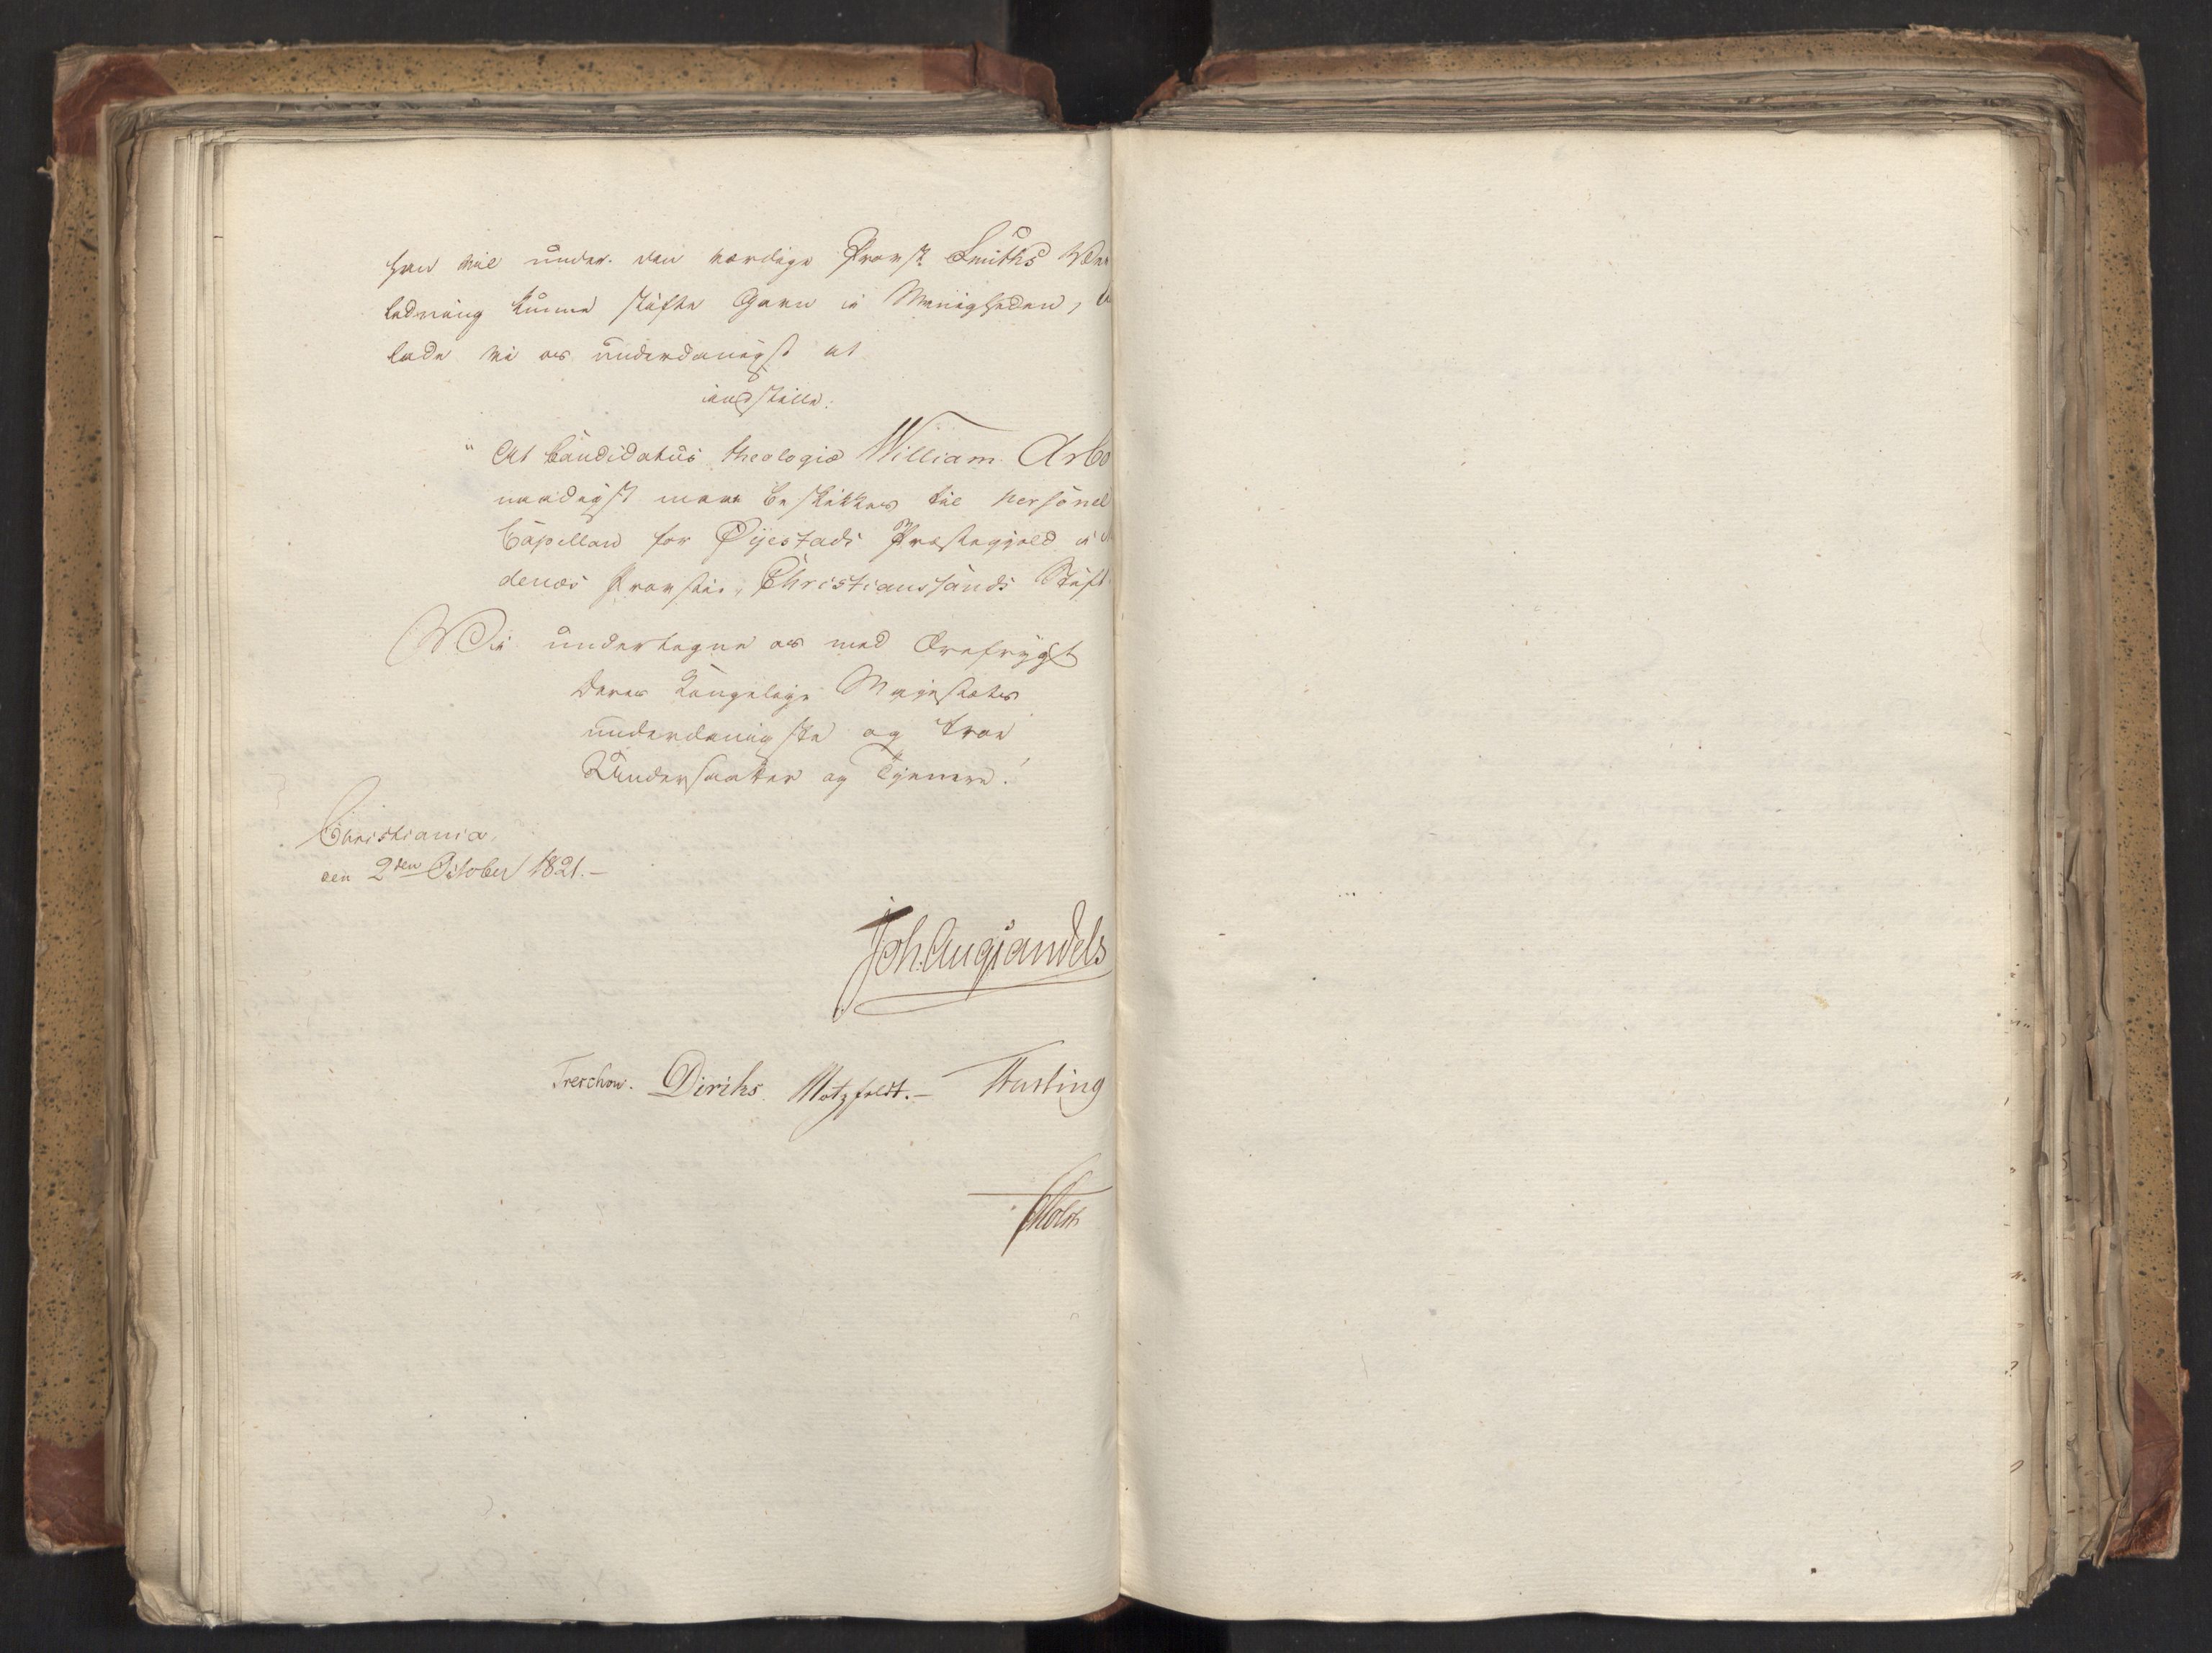 han vil under den værdige Provst Smiths Vei
ledning kunne stifte Gavn i Menigheden,
lade vi os underdanigst at
indstille:
"At Candidatus theologiæ William Arbo
naadigst maae beskikkes til personel
Capellan for Øyestads Præstegjeld i
denæs Provstie, Christianssands Stift
Vi undertegne os med Ærefrygt
Deres Kongelige Majestæts
underdanigste og troe
Undersaatter og Tjenere!
Christiania,
den 2den October 1821.-
Joh: Aug Sandels
Treschow. Diriks. Motzfeldt.- Fasting
Holst